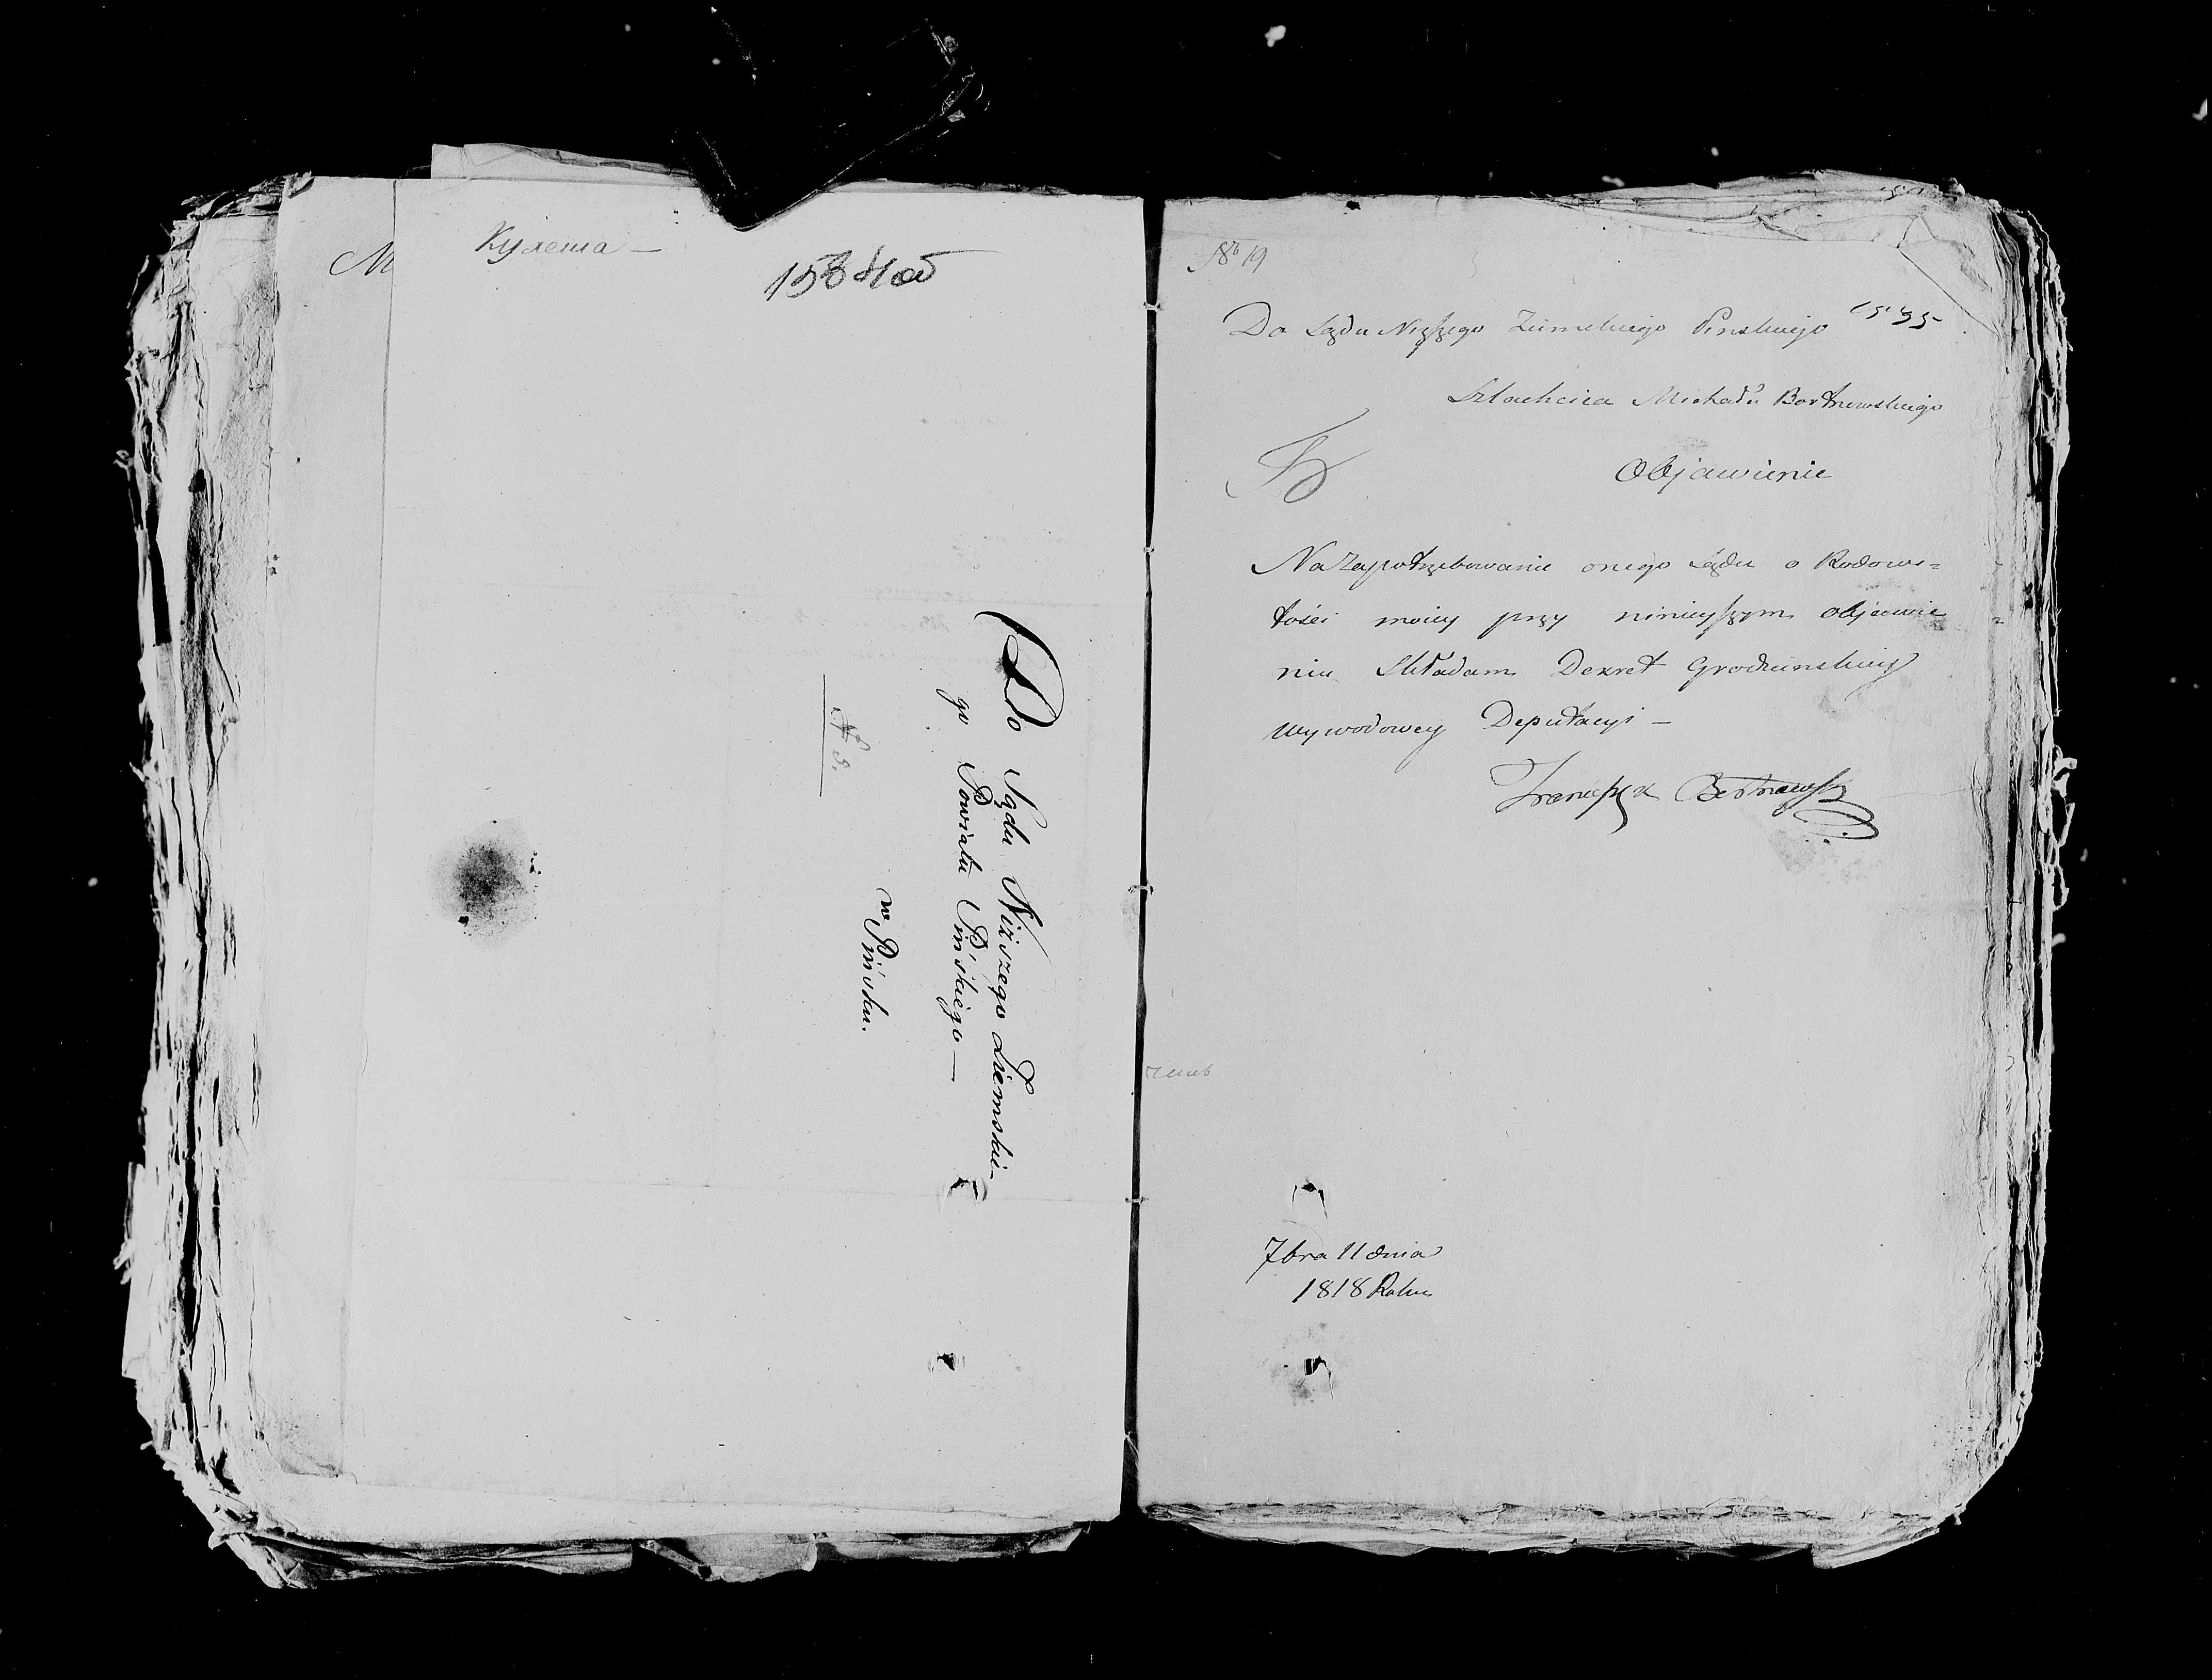 M
Кулеша —
1584 об
Do Sądu Niższego Ziemskie-
go Powiatu Pińskiego —
w Pińsku.
N 8.
No 19
Do Sądu Niższego Ziemskiego Pinskiego 1585
Szlachcica Michała Bortnowskiego
Objawienie
Na Zapotrzebowanie onego Sądu o Rodowi=
tości moiey przy ninieyszym objawie
niu Składam Dekret Grodzienskiey
wywodowey Deputacyi —
Franciszek Bortnowski
7bra 11 dnia
1818 Roku